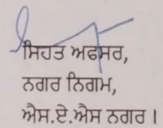 ਸਿਹਤ ਅਫਸਰ,
ਨਗਰ ਨਿਗਮ,
ਐਸ.ਏ.ਐਸ ਨਗਰ।